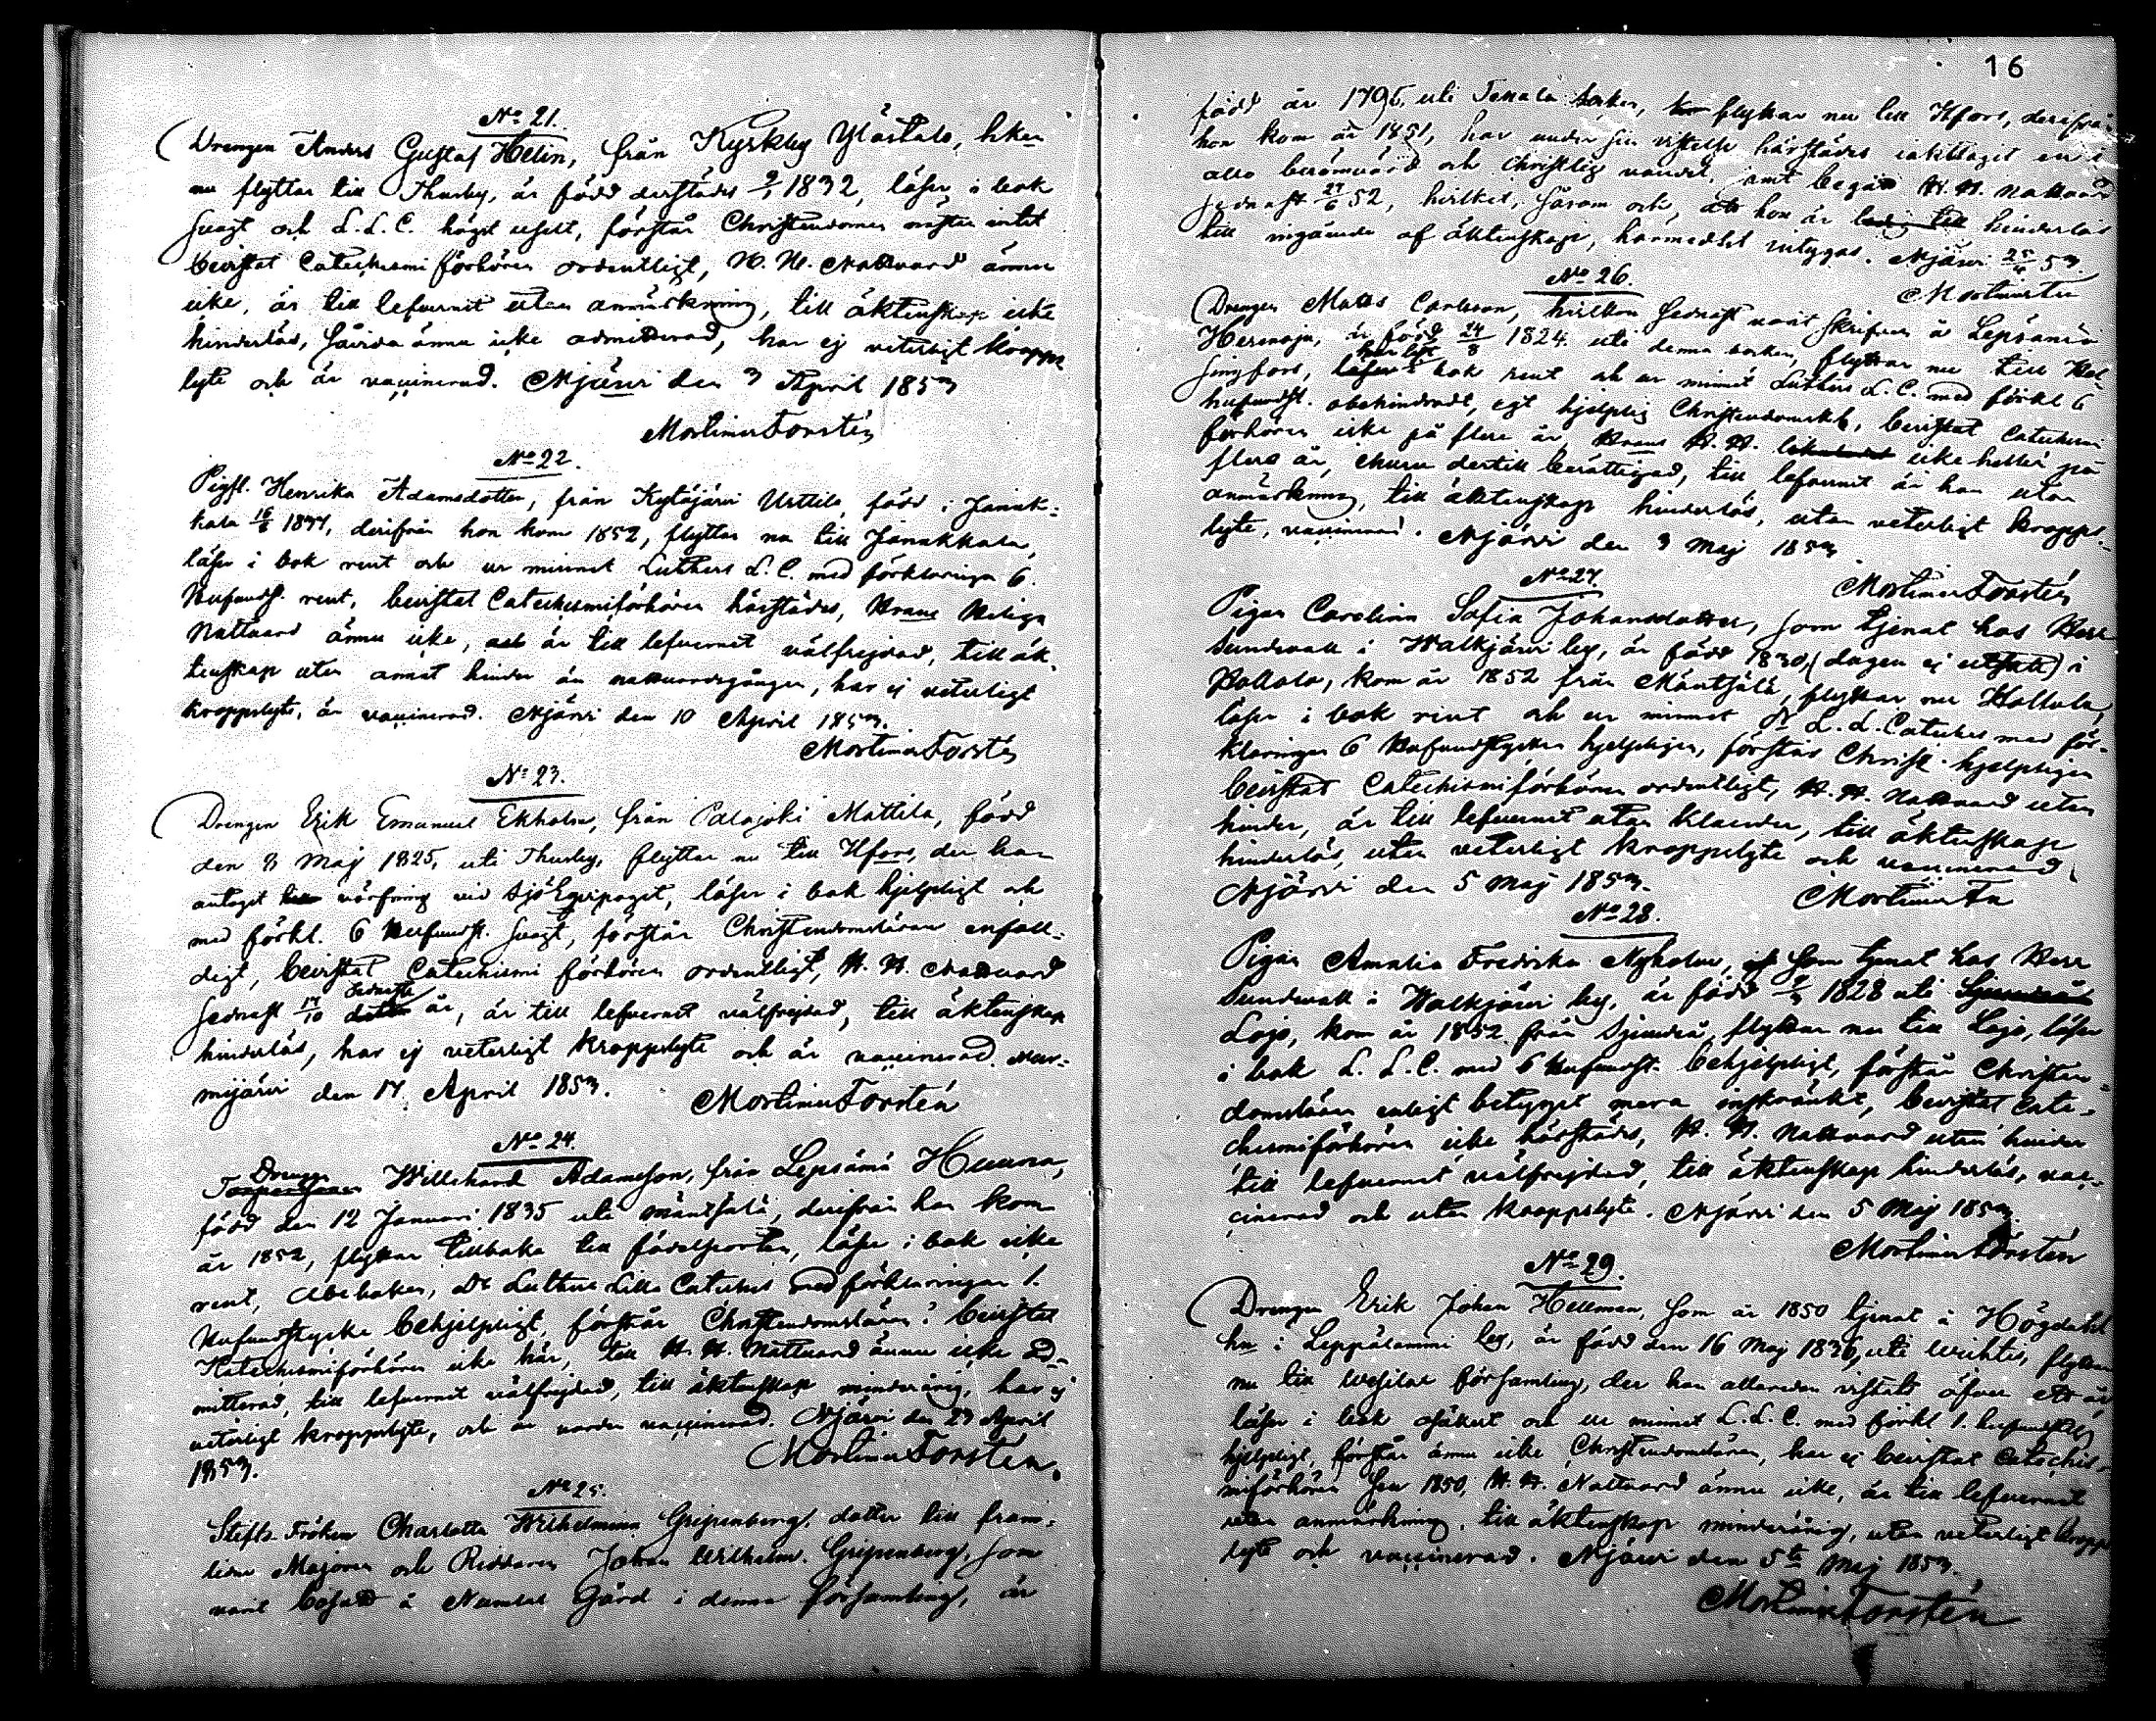 No 21.
Drengen Anders Gustaf Helin, från Kyrkby Ylästalo, hken
nu flyttar till Thusby, är född derstädes 2/9 1832, läser i bok
svagt och L. L. C. högst uselt, förstår Christendomen nästan intet
bevistat Catechismi förhören ordentligt, H. H. Nattvard ännu
icke, är till lefvernet utan anmärkning, till äktenskap icke
hinderlös, såsom ännu icke admitterad, har ej veterligt kropps
lyte och är vaccinerad. Njärvi den 3 April 1853
Mortimer Forstén
No 22.
Pigfl. Henrika Adamsdotter, från Kytäjärvi Urttila, född i Janak-
kala 16/8 1834, derifrån hon kom 1852, flyttar nu till Janakkala,
läser i bok rent och ur minnet Luthers L. C. med förklaringen 6.
Hufvudst. rent, bevistat Catechismiförhören härstädes, Herrans Heliga
Nattvard ännu icke, är till lefvernet välfrejdad, till äk-
tenskap utan annat hinder än nattvardsgången, har ej veterligt
kroppslyte, är vaccinerad. Njärvi den 10 April 1853.
Mortimer Forstén
No 23.
Drengen Erik Emanuel Ekholm, från Palojoki Mattila, född
den 8 Maj 1825, uti Thusby, flyttar nu till Hfors, der han
antagit värfning vid Sjö Equipaget, läser i bok hjelpligt och
med förkl. 6 Hufvudst. svagt, förstår Christendomsläran enfal-
digt, bevistat Catechismi förhören ordentligt, H. H. Nattvard
sednast 17/10 sednaste år, är till lefvernet välfrejdad, till äktenskap
hinderlös, har ej veterligt kroppslyte och är vaccinerad. Nur-
mijärvi den 17 April 1853.
Mortimer Forstén
No 24.
Drengen
Willehard Adamsson, från Lepsämä Huura,
född den 12 Januari 1835 uti Mäntsälä, derifrån han kom
år 1852, flyttar tillbaka till födelseorten, läser i bok icke
rent, Abcboken, Dr Luthers Lilla Catches med förklaringen 1.
Hufvudstycke behjelpligt, förstår Christendomsläran, bevistat
Katechismiförhören icke här, till H. H. Nattvard ännu icke ad-
mitterad, till lefvernet välfrejdad, till äktenskap minderårig, har ej
veterligt kroppslyte, och är vorden vaccinerad. Njärvi den 23 April
1853.
Mortimer Forstén.
No 25.
Stifts Fröken Charlotta Wilhelmina Gripenberg, dotter till fram-
lidne Majoren och Riddaren Johan Wilhelm Gripenberg, som
varit bosatt å Numlax Gård i denna församling, är
16
född år 1795, uti Tenala socken, flyttar nu till Hfors, derifrån
hon kom år 1851, har under sin vistelse härstädes iakttagit en i
allo berömvärd och Christlig vandel, samt begått H. H. Nattvard
sednast 27/6 52, hvilket, såsom och, att hon är ledig till hinderlös
till ingående af äktenskap, harmedelst intygas. Njärvi 25/4 53.
C. Mortimer Fn
No 26.
Drengen Matts Carlsson, hvilken sednast varit skrifven å Lepsämä
Hermoja, är född 24/8 1824 uti denna socken, flyttar nu till Hel-
singfors, har läst bok rent och ur minnet Luthers L. C. med förkl 6
hufvudst. obehindradt, egt hjelplig Christendomskb, bevistat Catechismi
förhören icke på flere år, H. H. icke heller på
flera år, churu dertill berättigad, till lefvernet är han utan
anmärkning, till äktenskap hinderlös, utan veterligt kropps-
lyte, vaccinerad. Njärvi den 3 Maj 1853
Mortimer Forstén
No 27.
Pigan Carolina Sofia Johansdotter, som tjenat hos Herr
Sundwall i Walkjärvi by, är född 1830, (dagen ej utsatt) i
Hollola, kom år 1852 från Mäntsälä, flyttar nu Hollola,
läser i bok rent och ur minnet Dr L. L. Catches med för-
klaringen 6 Hufvudstycken hjelpligen, förstår Christ. hjelpligen
bevistat Catechismiförhören ordentligt, H. H. Nattvard utan
hinder, är till lefvernet utan klander, till äktenskap
hinderlös, utan veterligt kroppslyte och vaccinerad.
Njärvi den 5 Maj 1853.
Mortimer Fn
No 28.
Pigan Amalia Fredrika Nyholm, som tjenat hos Herr
Sundwall i Walkjärvi by, är född 1828 uti
Lojo, kom år 1852 från Sjundeå, flyttar nu till Lojo, läser
i bok L. L. C. med 6 Hufvudst. behjelpligt, förstår Christen-
domsläran enligt betyget mera inskränkt, bevistat Cate-
chismiförhören icke härstädes, H. H. Nattvard utan hinder
till lefvernet välfrejdad, till äktenskap hinderlös, vac-
cinerad och utan kroppslyte. Njärvi den 5 Maj 1853.
Mortimer Forstén
No 29.
Drengen Erik Johan Hellman, som år 1850 tjenat å Högdahl
hn i Leppälammi by, är född den 16 Maj 1836, uti Wichtis, flyttar
nu till församling, der han allaredan vistats öfver ett år
läser i bok osäkert och ur minnet L. L. C. med förkl 1. hufvudstyc
hjelpligt, förstår ännu icke Christendomsläran, har ej bevistat Catechis-
miförhören sen 1850, H. H. Nattvard ännu icke, är till lefvernet
utan anmärkning, till äktenskap minderårig, utan veterligt kropps
lyte och vaccinerad. Njärvi den 5te Maj 1853.
Mortimer Forstén